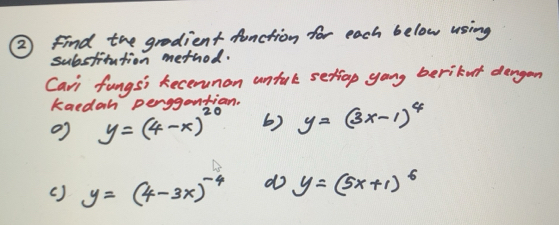 ② Find the gradient function for each below using
substitution method.
Cari fungsi kecerunan untuk setiap yang berikut dengan
kaedah penggantian.
a) y = (4-x)²⁰ b) y = (3x-1)⁴
c) y = (4-3x)⁻⁴ d) y = (5x+1)⁶